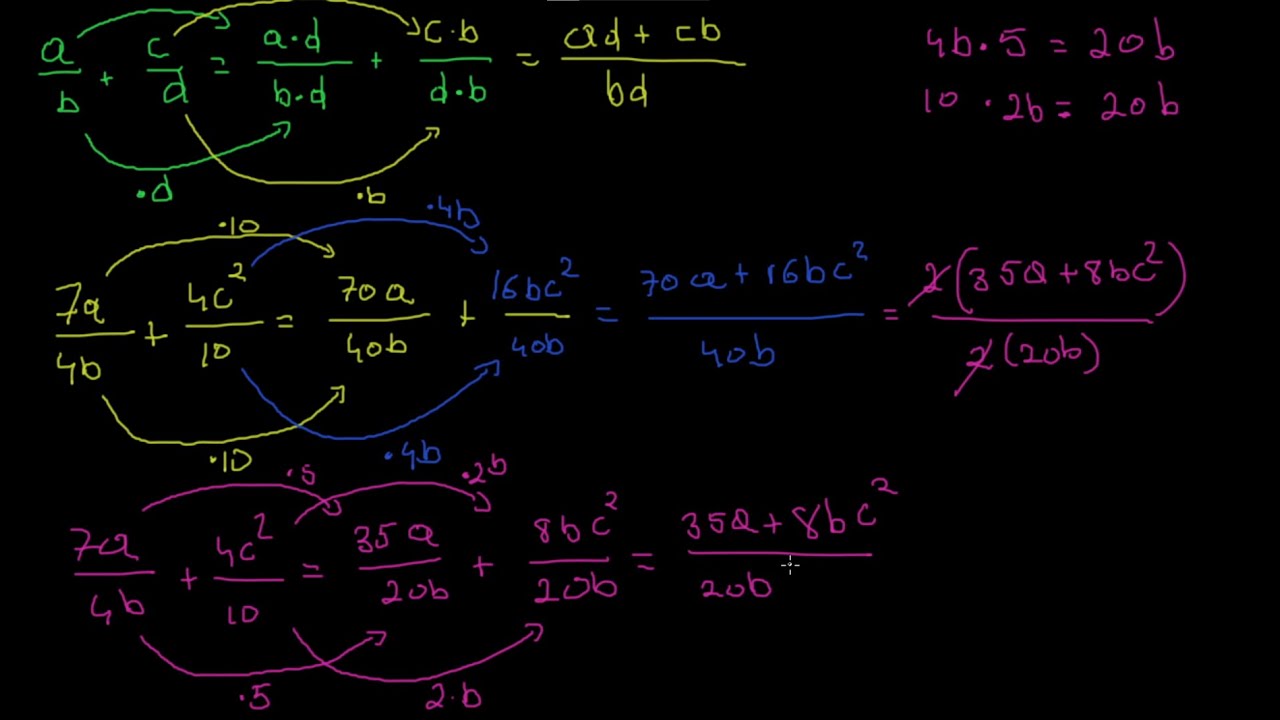 a/b + c/d = a·d/b·d + c·b/d·b = ad + cb/bd
·d ·b
4b·5 = 20b
10·2b = 20b
·10 ·4b
7a/4b + 4c²/10 = 70a/40b + 16bc²/40b = 70a + 16bc²/40b = 2(35a + 8bc²)/2(20b)
·10 ·4b
·5 ·2b
7a/4b + 4c²/10 = 35a/20b + 8bc²/20b = 35a + 8bc²/20b
·5 2·b